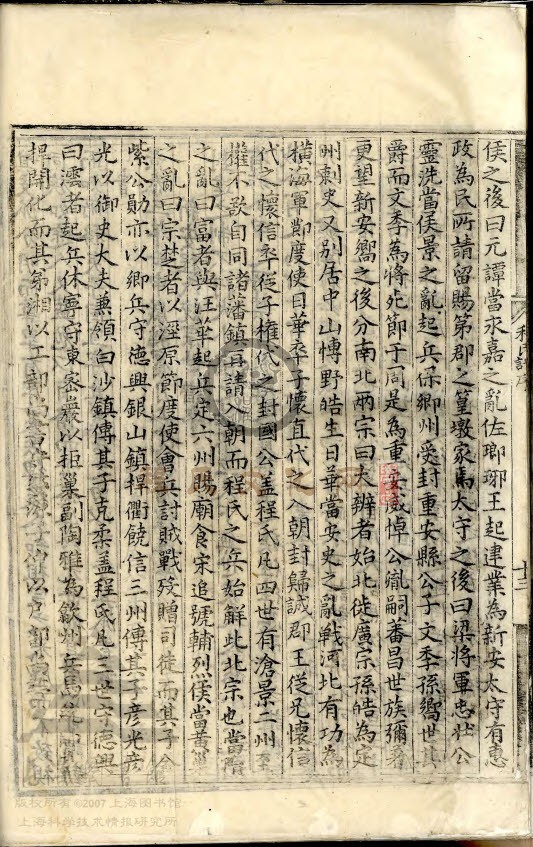 侯之後曰元譚當永嘉之亂佐瑯琊王起建業為新安太守有惠
政為民所請留賜第郡之篁墩家焉太守之後曰梁將軍忠壯公
靈洗當侯景之亂起兵保鄉州受封重安縣公子文季孫嚮世其
爵而文季為將死節于周是為重安威悼公嗣蕃昌世族彌著
更望新安嚮之後分南北兩宗曰大辨者始北徙廣宗孫皓為定
州刺史又別居中山博野皓生日華當安史之亂戰河北有功為
橫海軍節度使日華卒子懷直代之入朝封歸誠郡王從兄懷信
代之懷信卒從子權代之封國公盖程氏凡四世有滄景二州至
權不欲自同諸藩鎮再請入朝而程氏之兵始解此北宗也當隋
之亂曰富者與汪華起兵定六州賜廟食宋追號輔烈侯當黃巢
之亂曰宗楚者以涇原節度使會兵討賊戰歿贈司徒而其子金
紫公勛亦以鄉兵守德興銀山鎮捍衢饒信三州傳其子彥光彥
光以御史大夫兼領白沙鎮傳其子克柔盖程氏凡三世守德興
曰澐者起兵休寧守東密巖以拒巢副陶雅為歙州兵馬
捍開化而其弟湘以工部尚書
程氏譜序
十三
版权所有©2007 上海图书馆
上海科学技术情报研究所